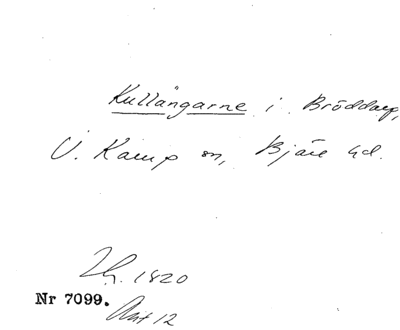 Kullängarne i Bröddarp,
V. Karup sn, Bjäre hd.
Lh. 1820
Nr 7099.
Akt 12